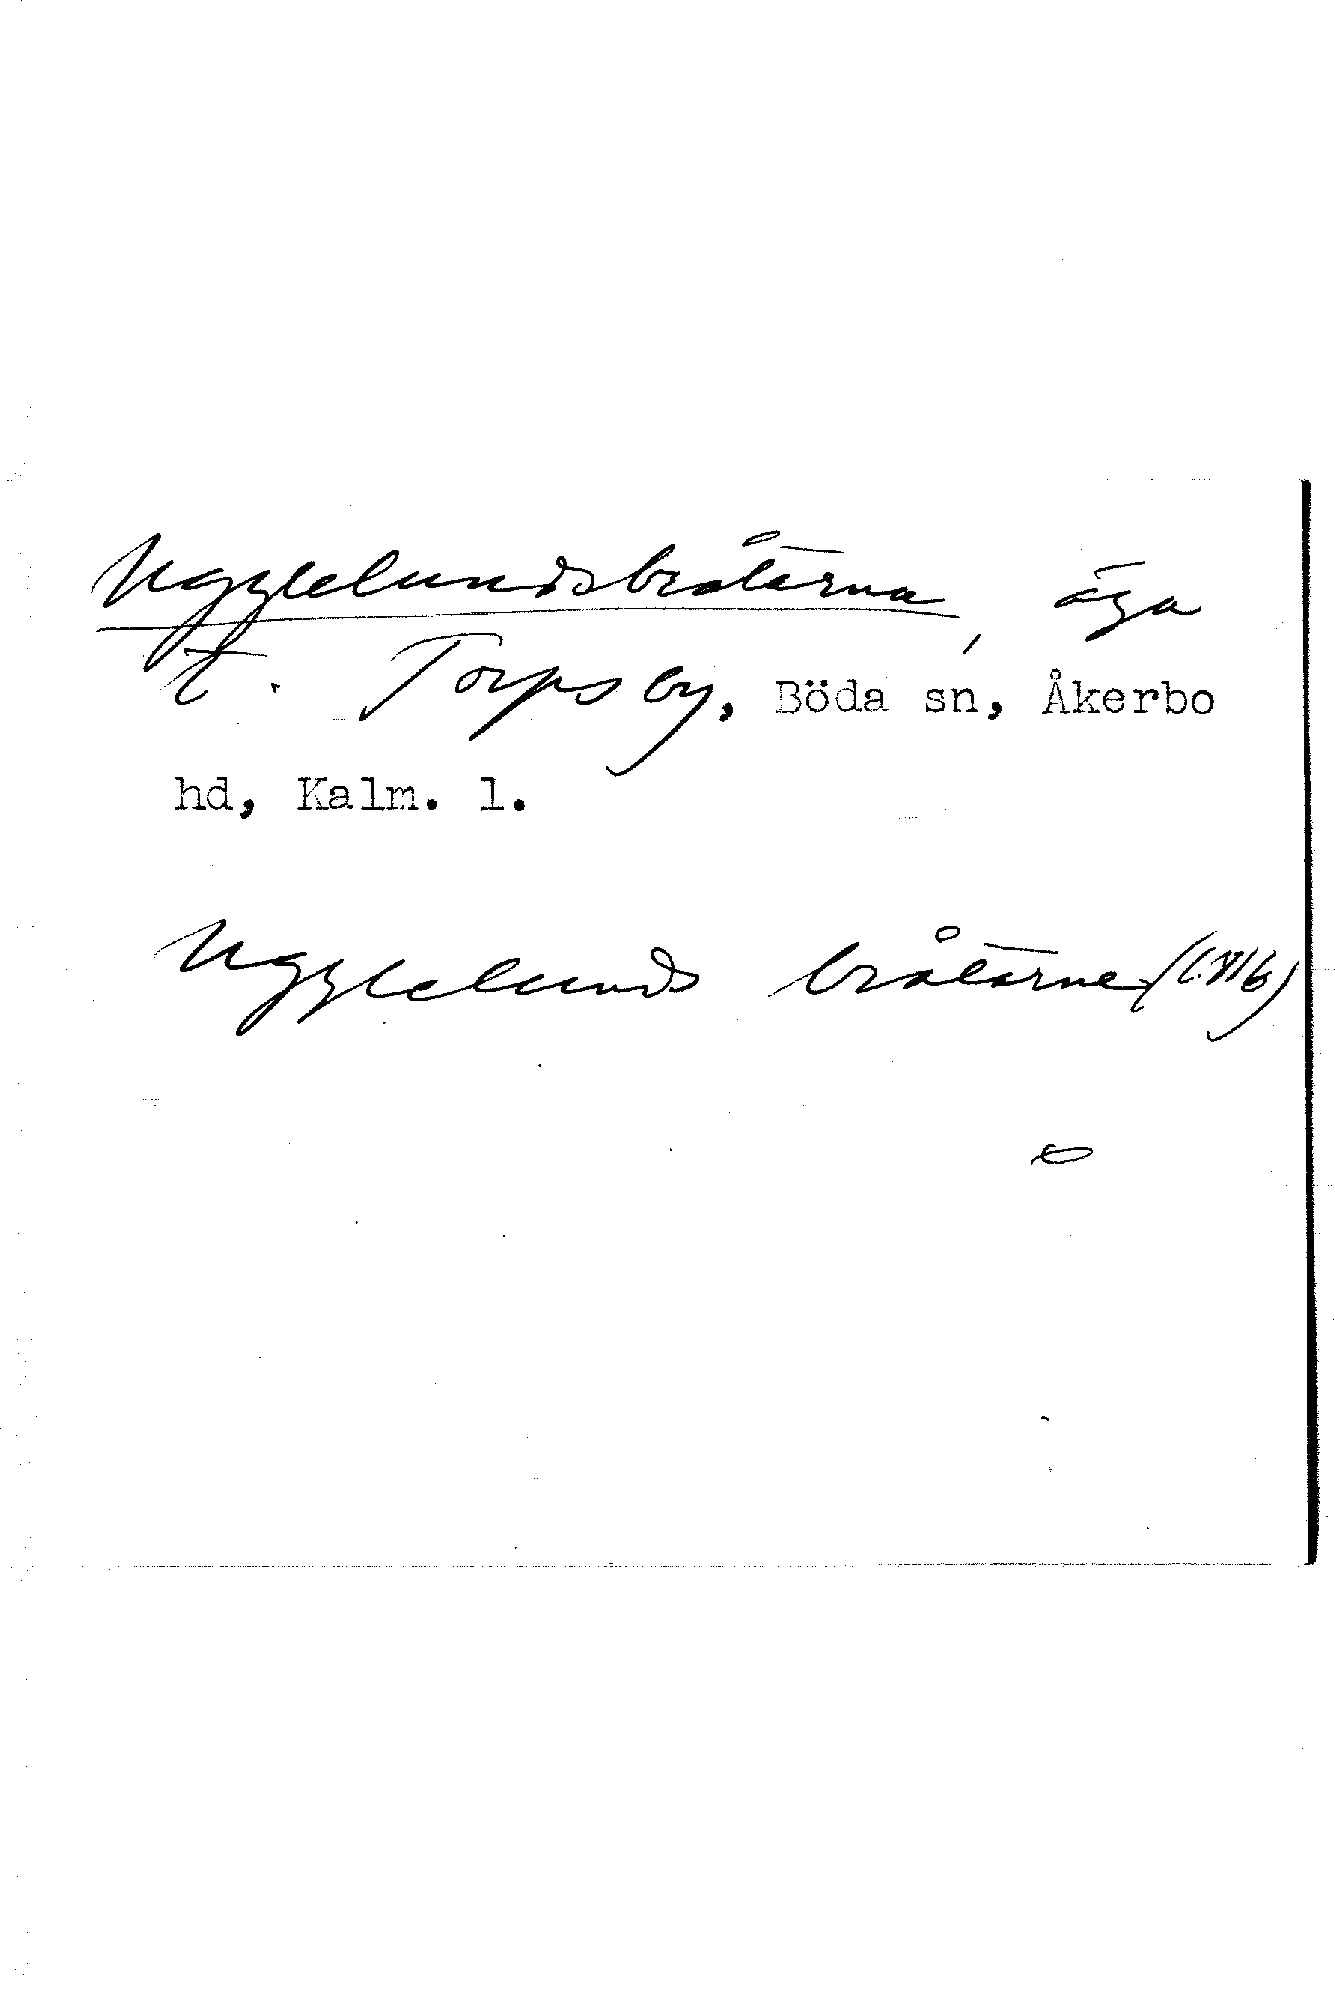 Ugglelundsbråtarna, äga
t. Torpsby, Böda sn, Åkerbo
hd, Kalm. l.
Ugglelunds bråtarne